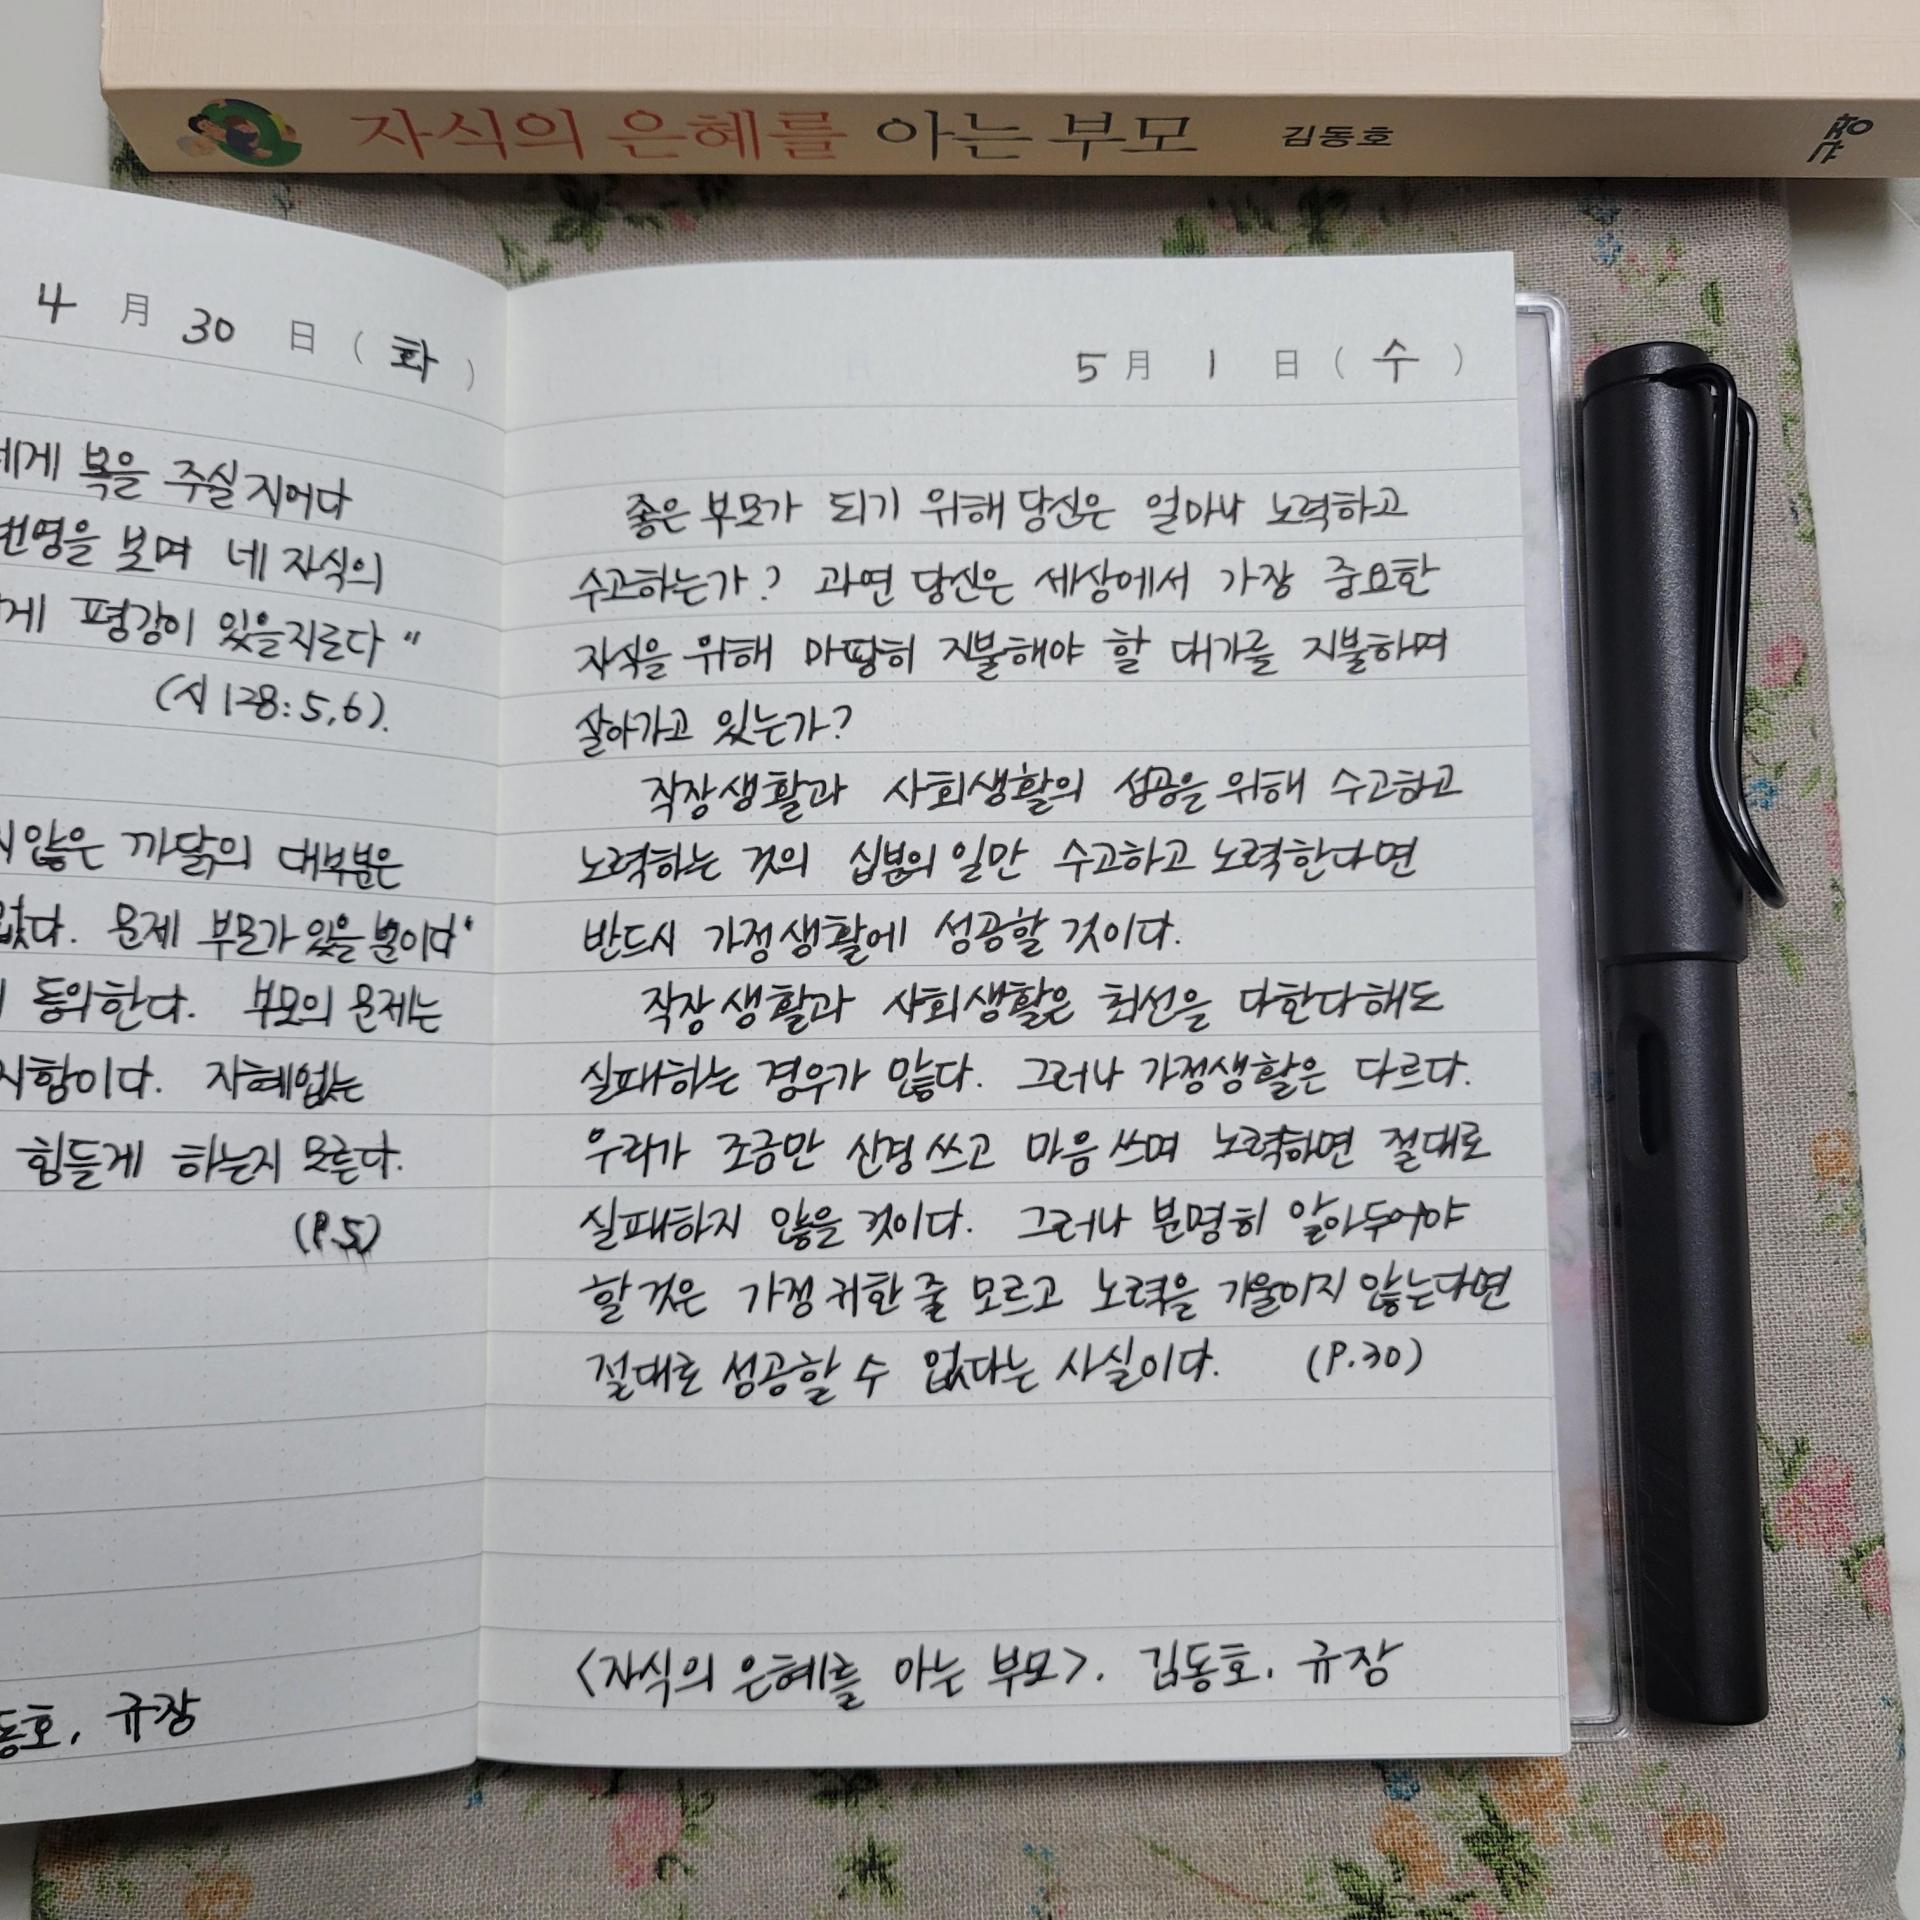 자식의 은혜를 아는 부모 김동호 규장
4 月 30 日 ( 화 )
복을 주실지어다
번영을 보며 네 자식의
평강이 있을지로다"
(시 128:5,6).
않은 까닭의 대부분은
없다. 문제 부모가 있을 뿐이다"
동의한다. 부모의 문제는
자혜없는
힘들게 하는지 모른다.
(P.5)
규장
5 月 1 日 ( 수 )
좋은 부모가 되기 위해 당신은 얼마나 노력하고
수고하는가? 과연 당신은 세상에서 가장 중요한
자식을 위해 마땅히 지불해야 할 대가를 지불하며
살아가고 있는가?
직장생활과 사회생활의 성공을 위해 수고하고
노력하는 것의 십분의 일만 수고하고 노력한다면
반드시 가정생활에 성공할 것이다.
직장생활과 사회생활은 최선을 다한다해도
실패하는 경우가 많다. 그러나 가정생활은 다르다.
우리가 조금만 신경쓰고 마음쓰며 노력하면 절대로
실패하지 않을 것이다. 그러나 분명히 알아두어야
할 것은 가정 귀한 줄 모르고 노력을 기울이지 않는다면
절대로 성공할 수 없다는 사실이다. (P.30)
<자식의 은혜를 아는 부모>. 김동호. 규장